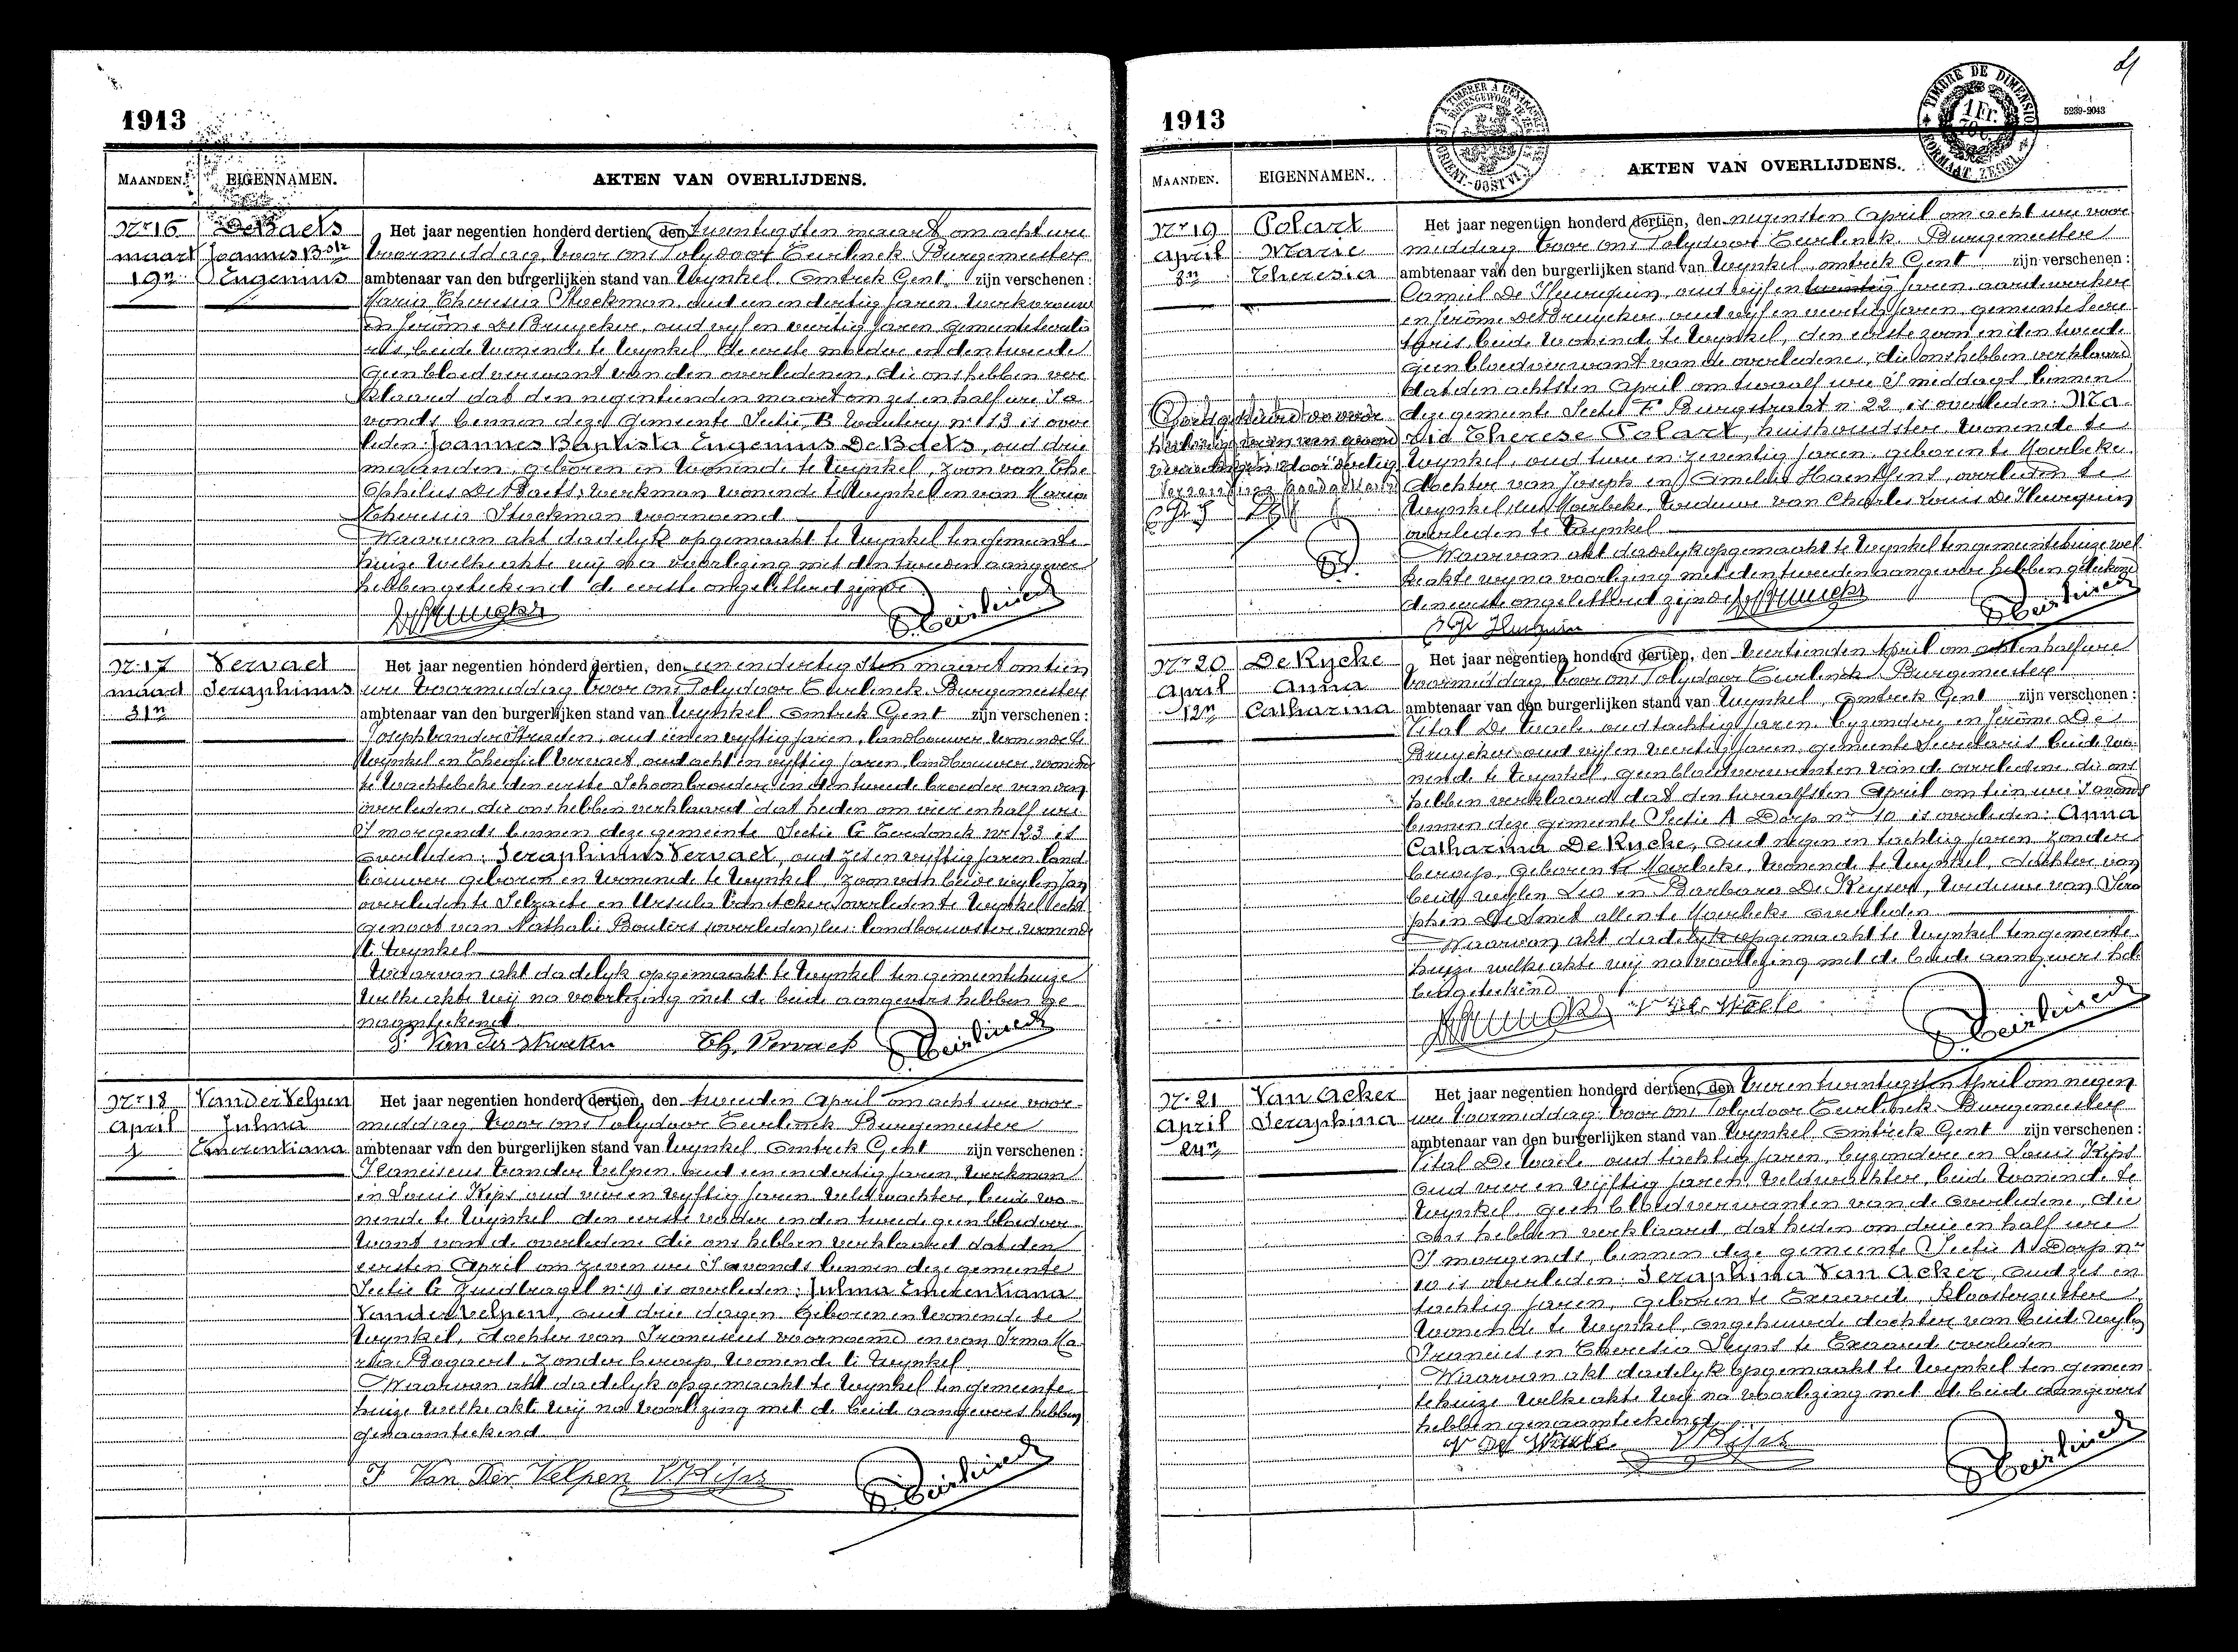 1913
MAANDEN. EIGENNAMEN. AKTEN VAN OVERLIJDENS.
Nr 16 De Baets Het jaar negentien honderd dertien, den twintigsten maart om acht ure
maart Joannes Bste voormiddag, voor ons Polydoor Eeirlinck Burgemeester
19n Eugenius ambtenaar van den burgerlijken stand van Wynkel omtrek Gent zijn verschenen:
Maria Theresia Stockman, oud een en dertig jaren, werkvrouw
en Jerôme De Bruycker, oud vyf en veertig jaren, gemeentesecreta
ris, beide wonende te Wynkel, de eerste moeder en den tweede
geen bloedverwant van den overledenen, die ons hebben ver
klaard dat den negentienden maart om zes en half ure 's a
vonds binnen deze gemeente Sectie B Woutery nr 113 is over
leden: Joannes Baptista Eugenius De Baets, oud drie
maanden, geboren en wonende te Wynkel, zoon van The
ophilius De Baets, werkman wonende te Wynkel en van Maria
Theresia Stockman voornoemd
Waarvan akt dadelyk opgemaakt te Wynkel ten gemeente
huize welke akte wij na voorlezing met den tweeden aangever
hebben geteekend de eerste ongeletterd zijnde
Nr 17 Vervaet Het jaar negentien honderd dertien, den een en dertigsten maart om tien
maart Seraphinus ure voormiddag, voor ons Polydoor Eeirlinck Burgemeester
31n ambtenaar van den burgerlijken stand van Wynkel omtrek Gent zijn verschenen:
Joseph Van der Straeten, oud een en vyftig jaren, landbouwer wonende te
Wynkel en Theofiel Vervaet oud acht en vyftig jaren, landbouwer, wonende
te Wachtebeke den eerste schoonbroeder en den tweede broeder van den
overledene, die ons hebben verklaard dat heden om vier en half ure
's morgends binnen deze gemeente Sectie C Eerdonck nr 123 is
overleden: Seraphinus Vervaet, oud zes en vyftig jaren land
bouwer geboren en wonende te Wynkel, zoon van beide wylen Jan
overleden te Selzaete en Ursula overleden te Wynkel echt
genoot van Nathalie landbouwster wonende
te Wynkel
Waarvan akt dadelyk opgemaakt te Wynkel ten gemeentehuize
welke akte wij na voorlezing met de beide aangevers hebben ge
naamteekend
J. Van der Straeten Th. Vervaet
Nr 18 Van der Velpen Het jaar negentien honderd dertien, den tweeden April om acht ure voor
April Julma middag, voor ons Polydoor Eeirlinck Burgemeester
1 Emerentiana ambtenaar van den burgerlijken stand van Wynkel omtrek Gent zijn verschenen:
Franciscus Van der Velpen, oud een en dertig jaren, werkman
en Louis Kips oud vier en vyftig jaren veldwachter, beide wo
nende te Wynkel den eerste vader en den tweede geen bloedver
want van de overledene die ons hebben verklaard dat den
eersten April om zeven ure 's avonds binnen deze gemeente
Sectie C nr 19 is overleden: Julma Emerentiana
Van der Velpen, oud drie dagen geboren en wonende te
Wynkel, dochter van Franciscus voornoemd en van Irma Ma
ria Bogaert, zonder beroep, wonende te Wynkel
Waarvan akt dadelyk opgemaakt te Wynkel ten gemeente
huize welke akte wij na voorlezing met de beide aangevers hebben
genaamteekend
F Van Der Velpen L Kips
1913
5239-2043
TIMBRE DE DIMENSION
1 Fr.
FORMAAT ZEGEL
MAANDEN. EIGENNAMEN. AKTEN VAN OVERLIJDENS.
Nr 19 Polart Het jaar negentien honderd dertien, den negensten April om acht ure voor
April Marie middag voor ons Polydoor Eeirlinck Burgemeester
8n Theresia ambtenaar van den burgerlijken stand van Wynkel, omtrek Gent zijn verschenen:
Camiel De oud vijf en jaren, aardewerker
en Jerôme De Bruycker, oud vijf en veertig jaren, gemeente secre
taris, beide wonende te Wynkel, den eerste zoon en den tweede
geen bloedverwant van de overledene, die ons hebben verklaard
dat den achtsten April om twaalf ure 's middags binnen
deze gemeente Sectie F Burgstraat nr 22 is overleden: Ma
rie Therese Polart, huishoudster, wonende te
Wynkel, oud twee en zeventig jaren, geboren te Moerbeke
dochter van Joseph en Amelia overleden te
Moerbeke, weduwe van Charles Louis De
overleden te Wynkel
Waarvan akt dadelyk opgemaakt te Wynkel ten gemeentehuize wel
ke akte wy na voorlezing met den tweeden aangever hebben geteekend
den eerste ongeletterd zijnde
Nr 20 De Rycke Het jaar negentien honderd dertien, den veertienden April om acht en half ure
April Anna voormiddag, voor ons Polydoor Eeirlinck Burgemeester
12n Catharina ambtenaar van den burgerlijken stand van Wynkel, omtrek Gent zijn verschenen:
Vital De Waele, oud tachtig jaren, byzondere en Jerôme De
Bruycker oud vijf en veertig jaren, gemeente secretaris beide wo
nende te Wynkel, geen bloedverwanten van de overledene, die ons
hebben verklaard dat den twaalfsten April om tien ure 's avonds
binnen deze gemeente Sectie A Dorp nr 10 is overleden: Anna
Catharina De Rycke, oud negen en tachtig jaren zonder
beroep, geboren te Moerbeke, wonende te Wynkel, dochter van
beide wylen Leo en Barbara De Keyser, weduwe van Sera
phin De Smet allen te Moerbeke overleden
Waarvan akt dadelyk opgemaakt te Wynkel ten gemeente
huize welke akte wij na voorlezing met de beide aangevers heb
ben geteekend
V. De Waele
Nr 21 Van Acker Het jaar negentien honderd dertien, den vier en twintigsten April om negen
April Seraphina ure voormiddag, voor ons Polydoor Eeirlinck Burgemeester
24n ambtenaar van den burgerlijken stand van Wynkel, omtrek Gent zijn verschenen:
Vital De Waele oud tachtig jaren, byzondere en Louis Kips
oud vier en vijftig jaren, veldwachter, beide wonende te
Wynkel, geen bloedverwanten van de overledene, die
ons hebben verklaard, dat heden om drie en half ure
's morgends, binnen deze gemeente Sectie A Dorp nr
10 is overleden: Seraphina Van Acker, oud zes en
tachtig jaren, geboren te Exaarde, kloosterzuster,
wonende te Wynkel, ongehuwde dochter van beide wylen
Francies en Theresia Seyns te Exaarde overleden
Waarvan akt dadelyk opgemaakt te Wynkel ten gemeen
tehuize welke akte wij na voorlezing met de beide aangevers
hebben genaamteekend
V De Waele L Kips